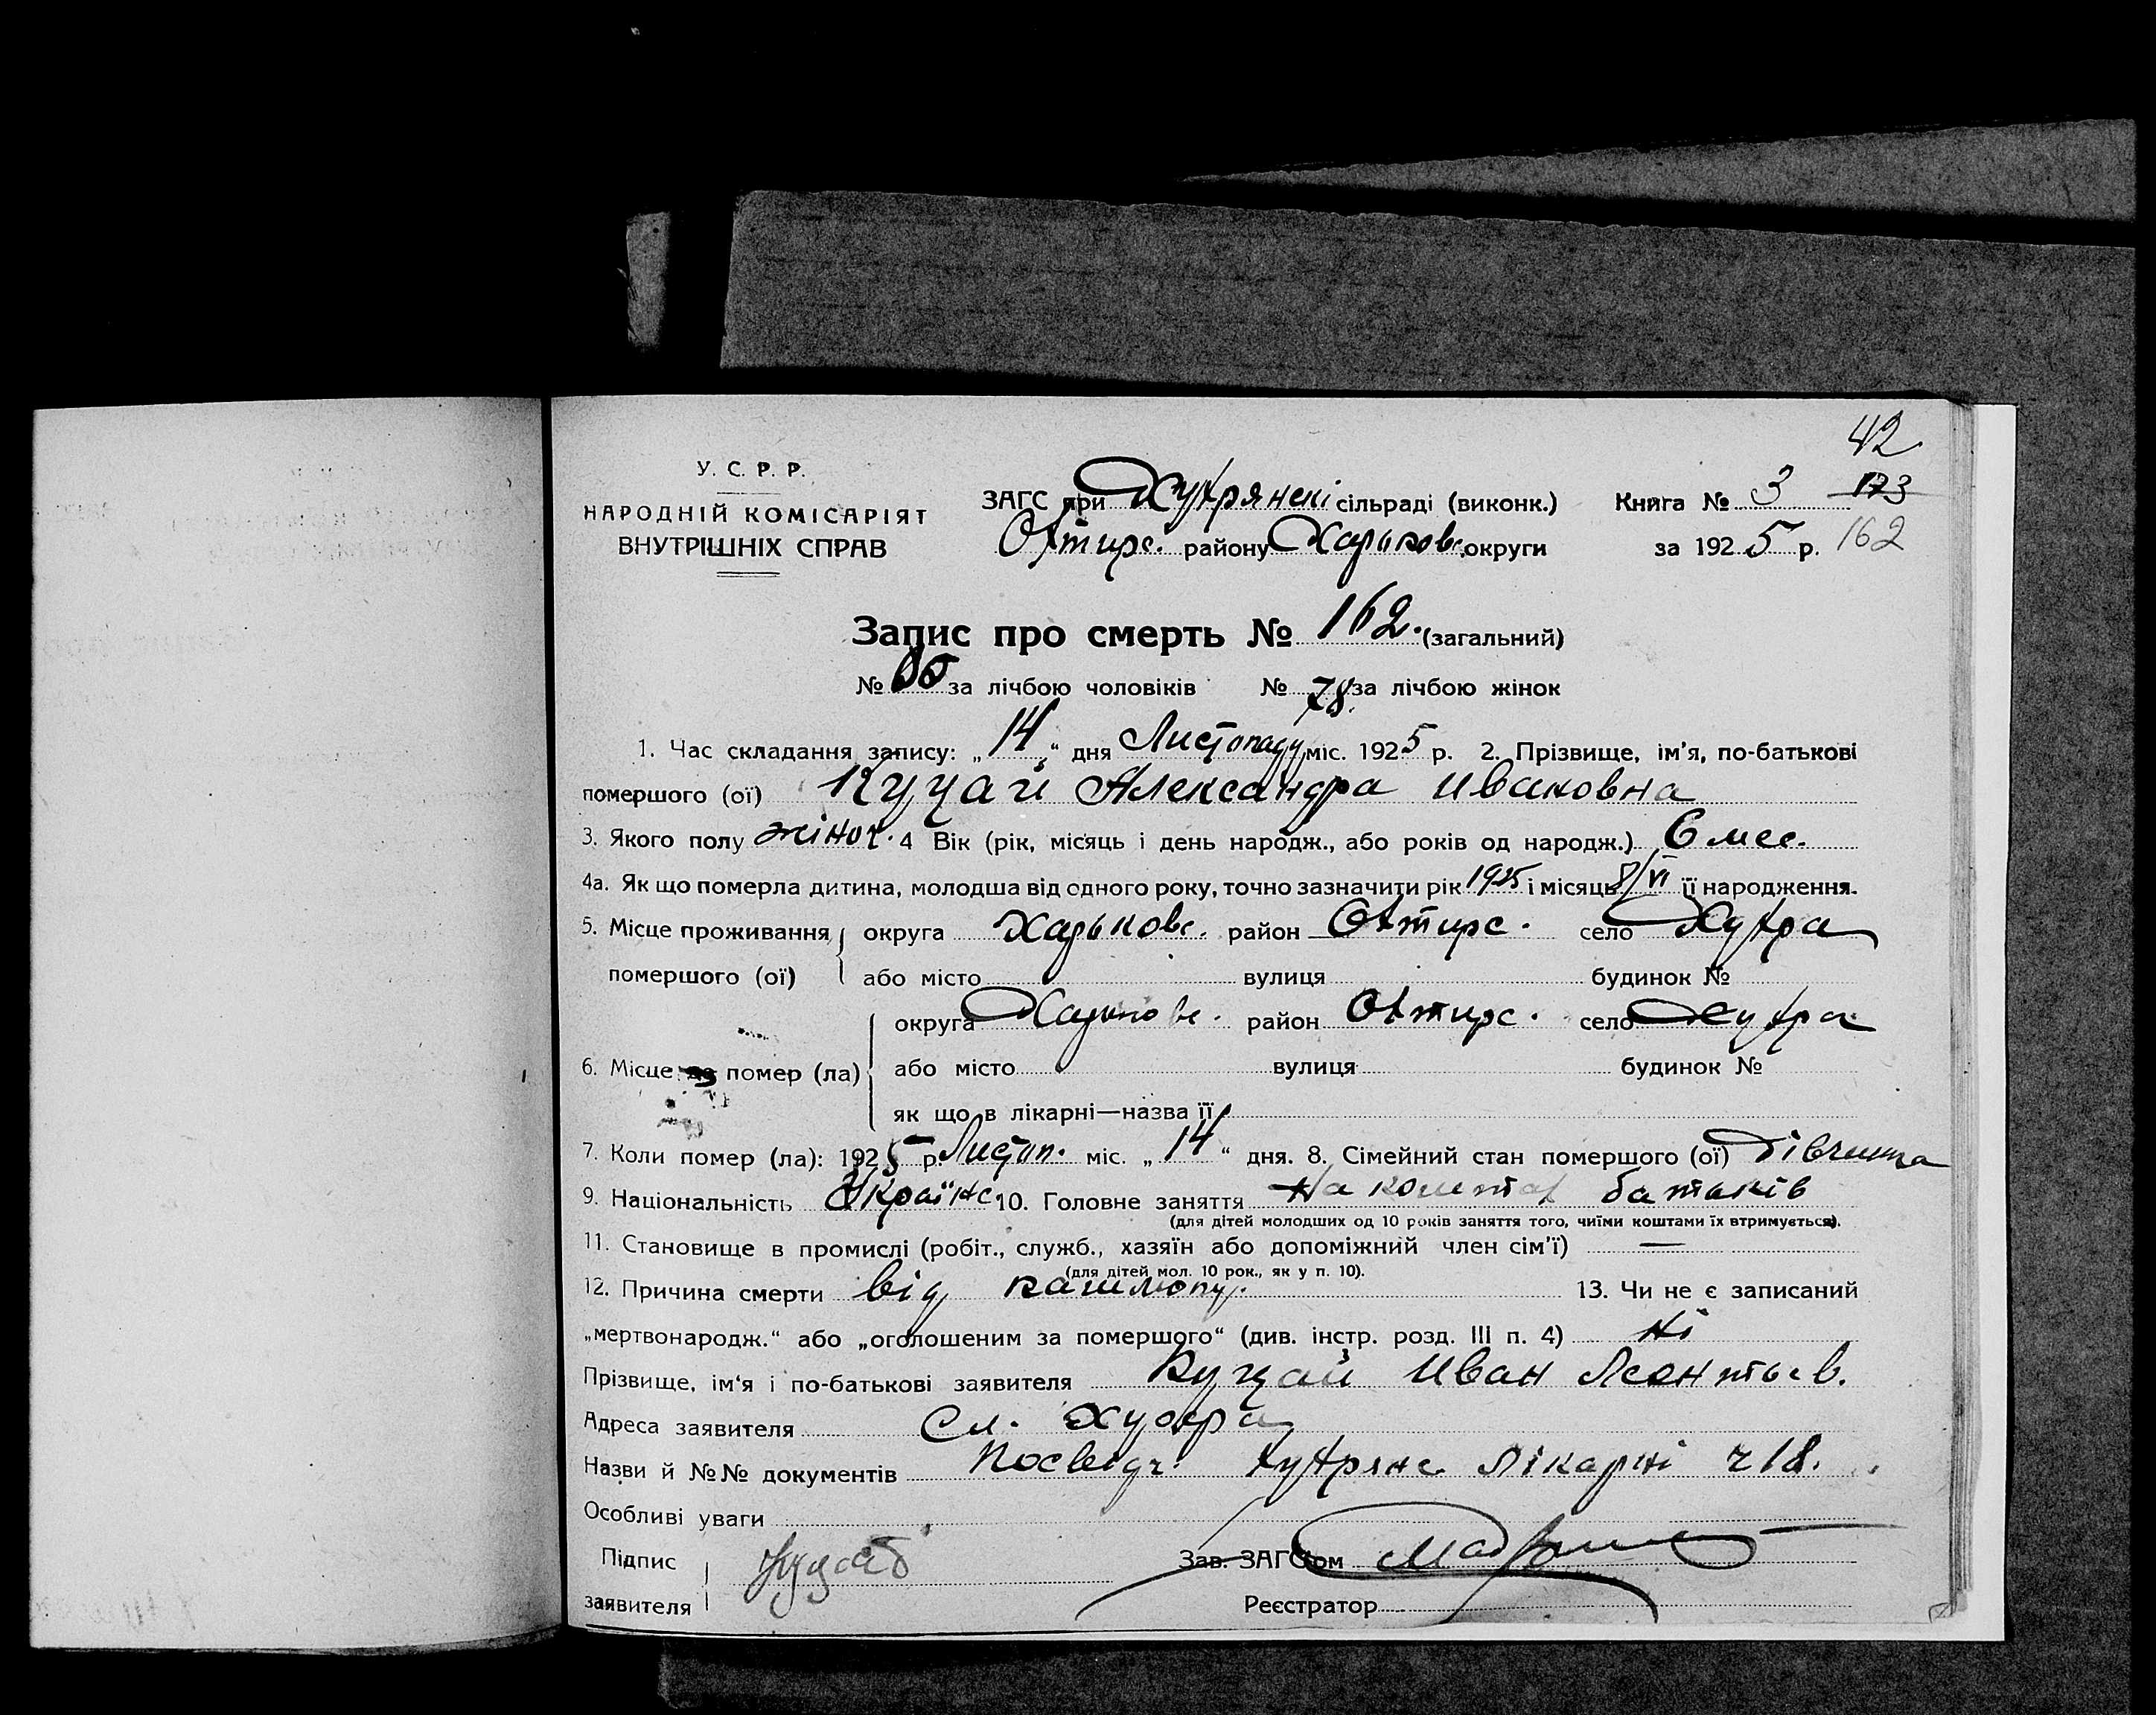 42
У. С. Р. Р.
НАРОДНІЙ КОМІСАРІЯТ
ВНУТРІШНІХ СПРАВ
ЗАГС при Хухрянскі сільраді (виконк.)
Охтирс. району Харьковс. округи
Книга № 3 173
за 1925 р. 162
Запис про смерть № 162. (загальний)
№ за лічбою чоловіків № 78. за лічбою жінок
1. Час складання запису: „14“ дня Листопаду міс. 1925 р. 2. Прізвище, ім'я, по-батькові
помершого (ої) Куцай Александра Ивановна
3. Якого полу жіноч. 4 Вік (рік, місяць і день народж., або років од народж.) 6 мес.
4а. Як що померла дитина, молодша від одного року, точно зазначити рік 1925 і місяць 8/VI її народження.
5. Місце проживання округа Харьковс. район Охтирс. село Хухра
помершого (ої) або місто вулиця будинок №
округа Харьковс. район Охтирс. село Хухра
6. Місце помер (ла) або місто вулиця будинок №
як що в лікарні—назва її
7. Коли помер (ла): 1925 р. Листоп. міс. „14“ дня. 8. Сімейний стан помершого (ої) дівчина
9. Національність Українс 10. Головне заняття На коштах батьків
(для дітей молодших од 10 років заняття того, чиїми коштами їх втримується).
11. Становище в промислі (робіт., служб., хазяїн або допоміжний член сім'ї) —
(для дітей мол. 10 рок., як у п. 10).
12. Причина смерти від кашлюку. 13. Чи не є записаний
„мертвонародж.“ або „оголошеним за помершого“ (див. інстр. розд. III п. 4) Ні
Прізвище, ім'я і по-батькові заявителя Куцай Иван Леонтьев.
Адреса заявителя Сл. Хухра
Назви й №№ документів Посвідч. Хухрянс. Лікарні ч 18.
Особливі уваги
Підпис
заявителя
Зав. ЗАГС'ом
Реєстратор